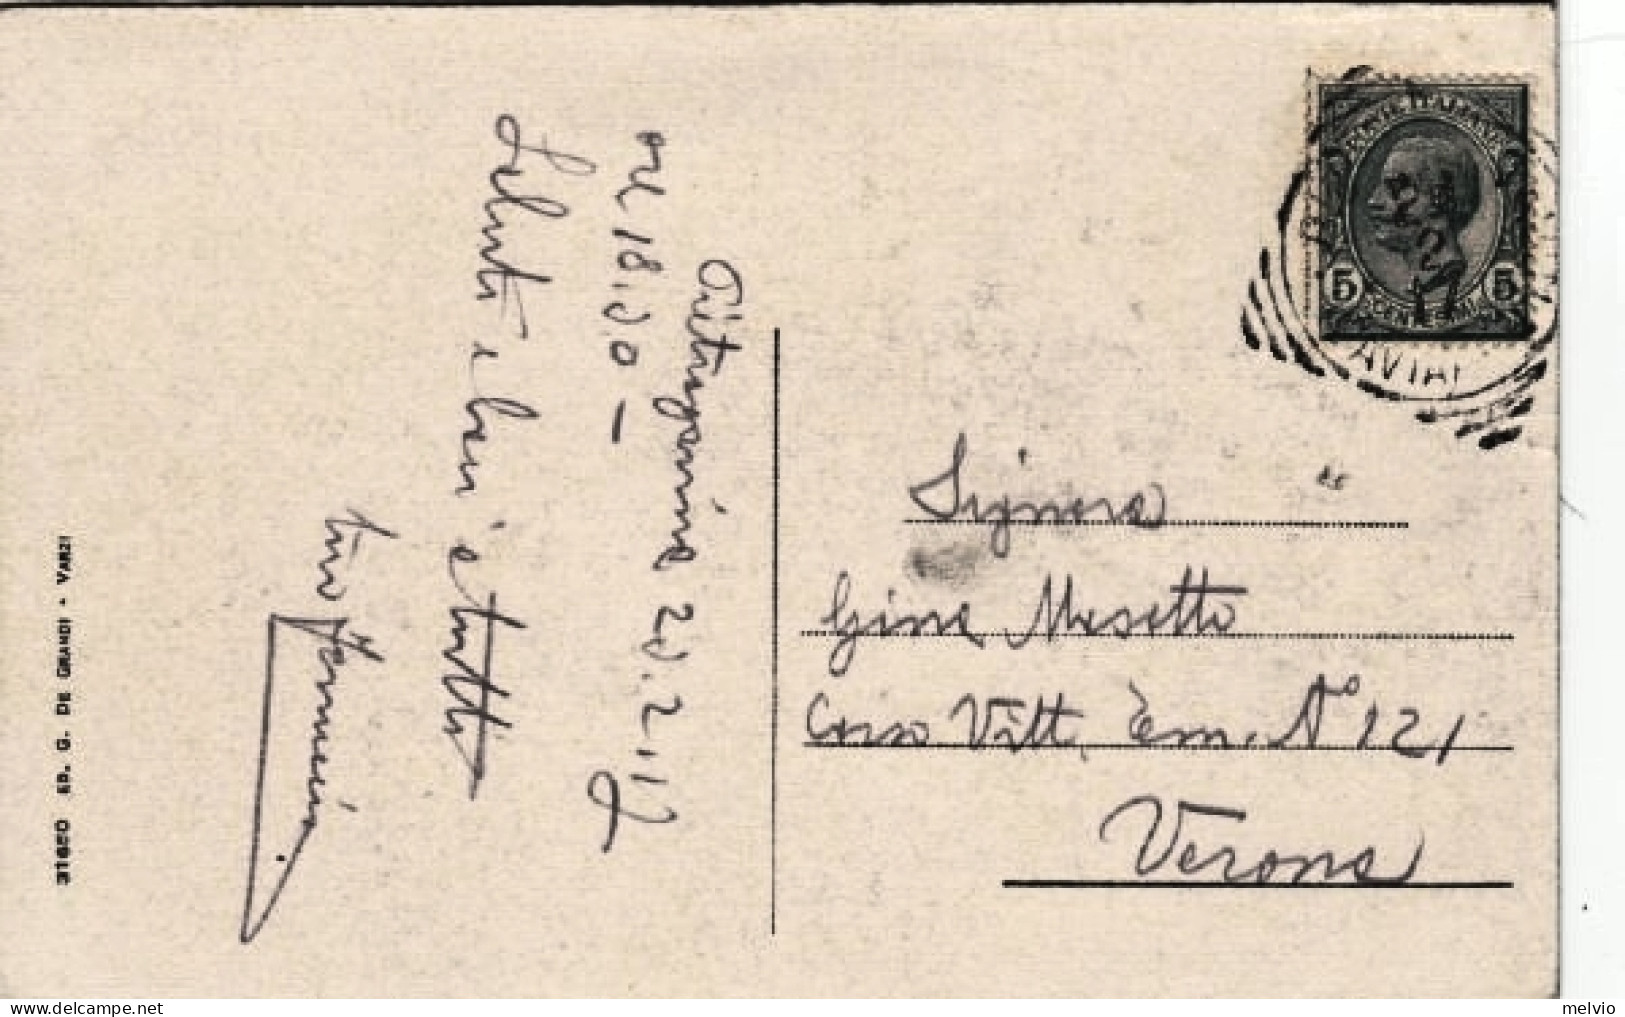 Pietragavina 20.2.17
ore 18.00 —
Saluti e baci a tutti
tuo
31650 ED. G. DE GRANDI - VARZI
POSTE ITALIANE
5 5
CENTESIMI
17
PAVIA
Signora
Gina Masotto
Corso Vitt. Em. N° 121
Verona
melvio